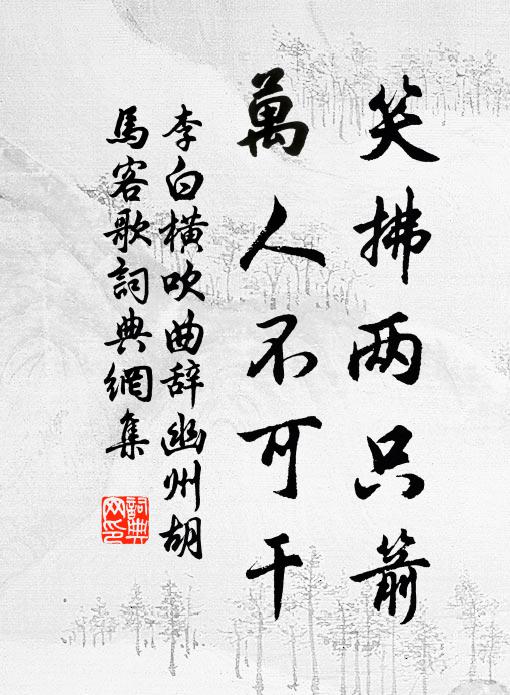 笑拂两只箭
萬人不可干
李白横吹曲辞幽州胡
馬客歌詞典網集
詞典
网印